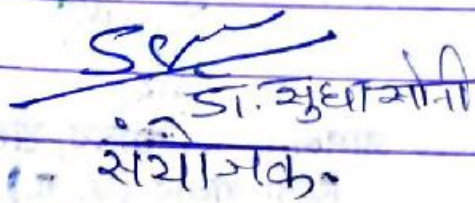 डॉ. सुधा सोनी
संयोजक.